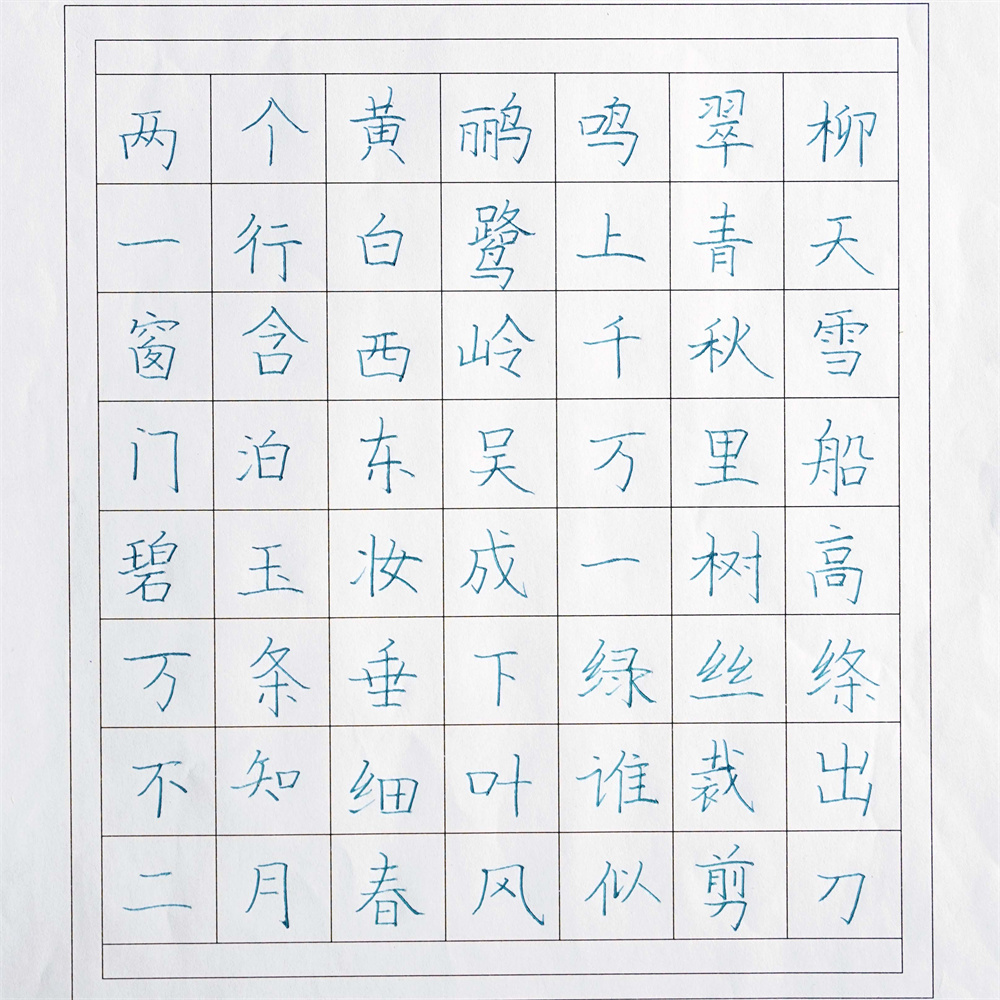 两个黄鹂鸣翠柳
一行白鹭上青天
窗含西岭千秋雪
门泊东吴万里船
碧玉妆成一树高
万条垂下绿丝绦
不知细叶谁裁出
二月春风似剪刀